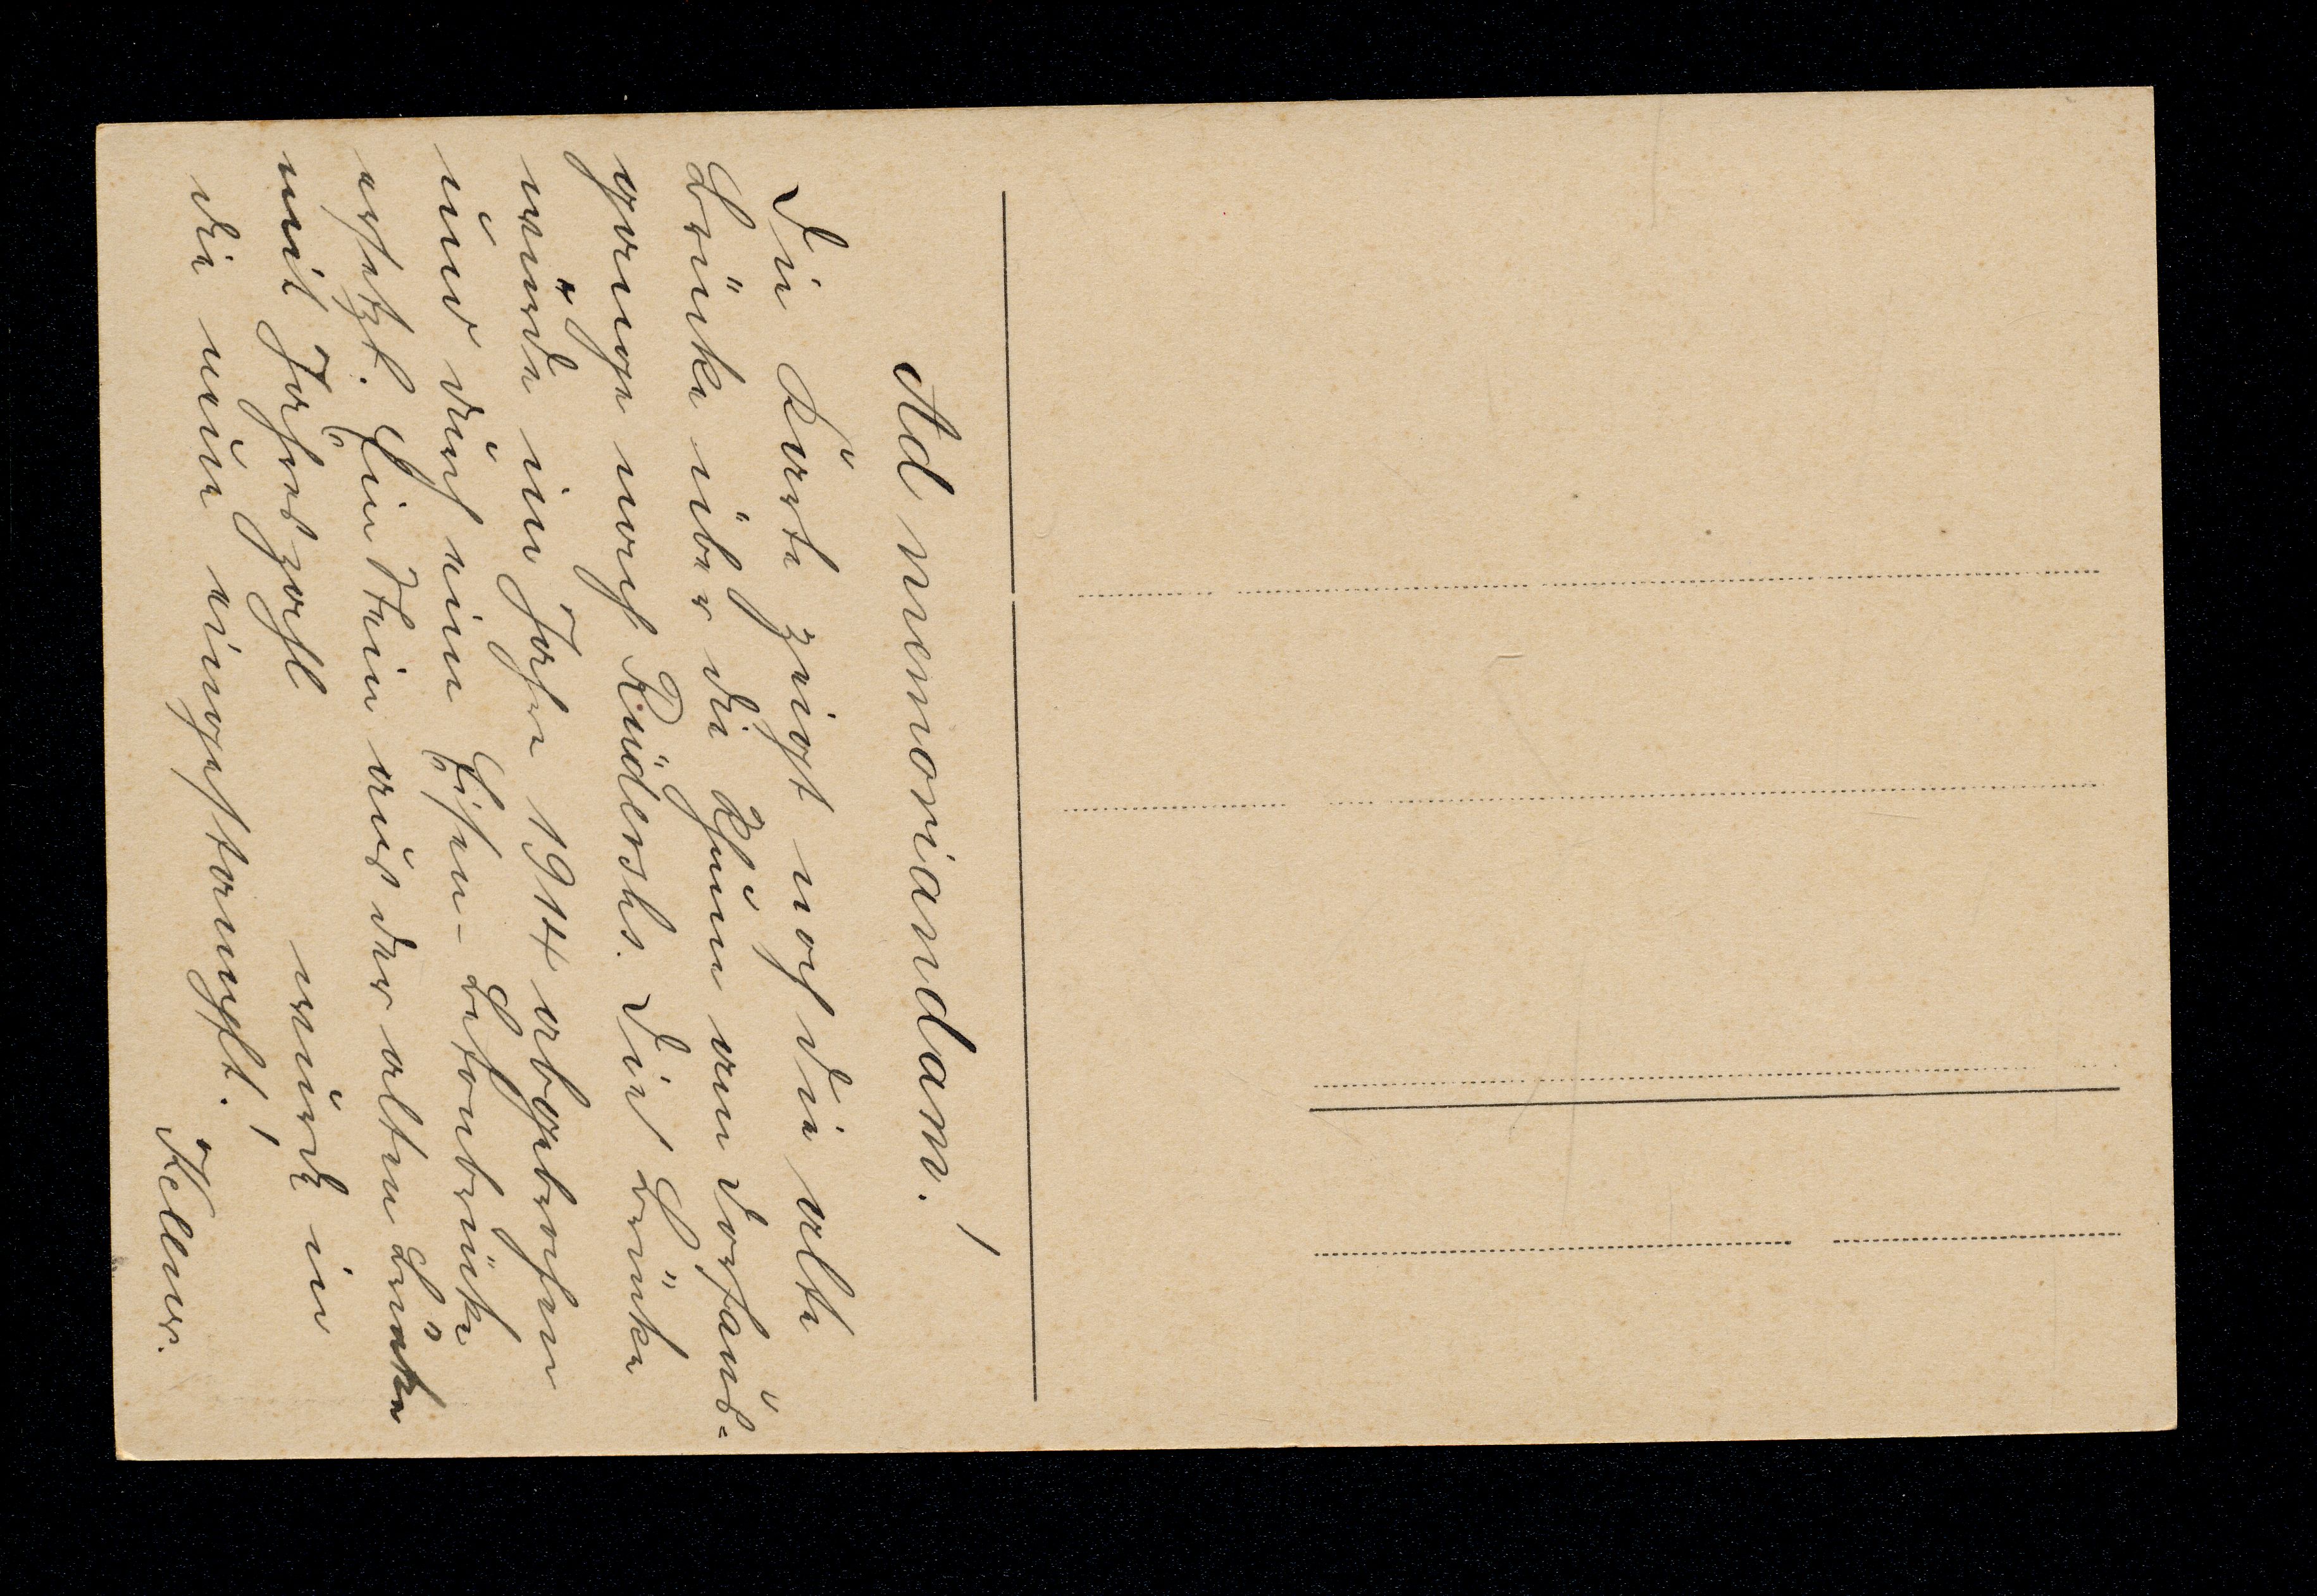 Ad memoriandam!
Die Karte zeigt noch die alte
Brücke über die Rhume am Dorfaus-
gange nach Rüdersh. Die Brücke
wurde im Jahre 1914 abgebrochen
und durch eine Eisen-Betonbrücke
ersetzt. Ein Stein aus der alten Brücke
mit Jahreszahl wurde in
die neue eingestampft!
Kellner.